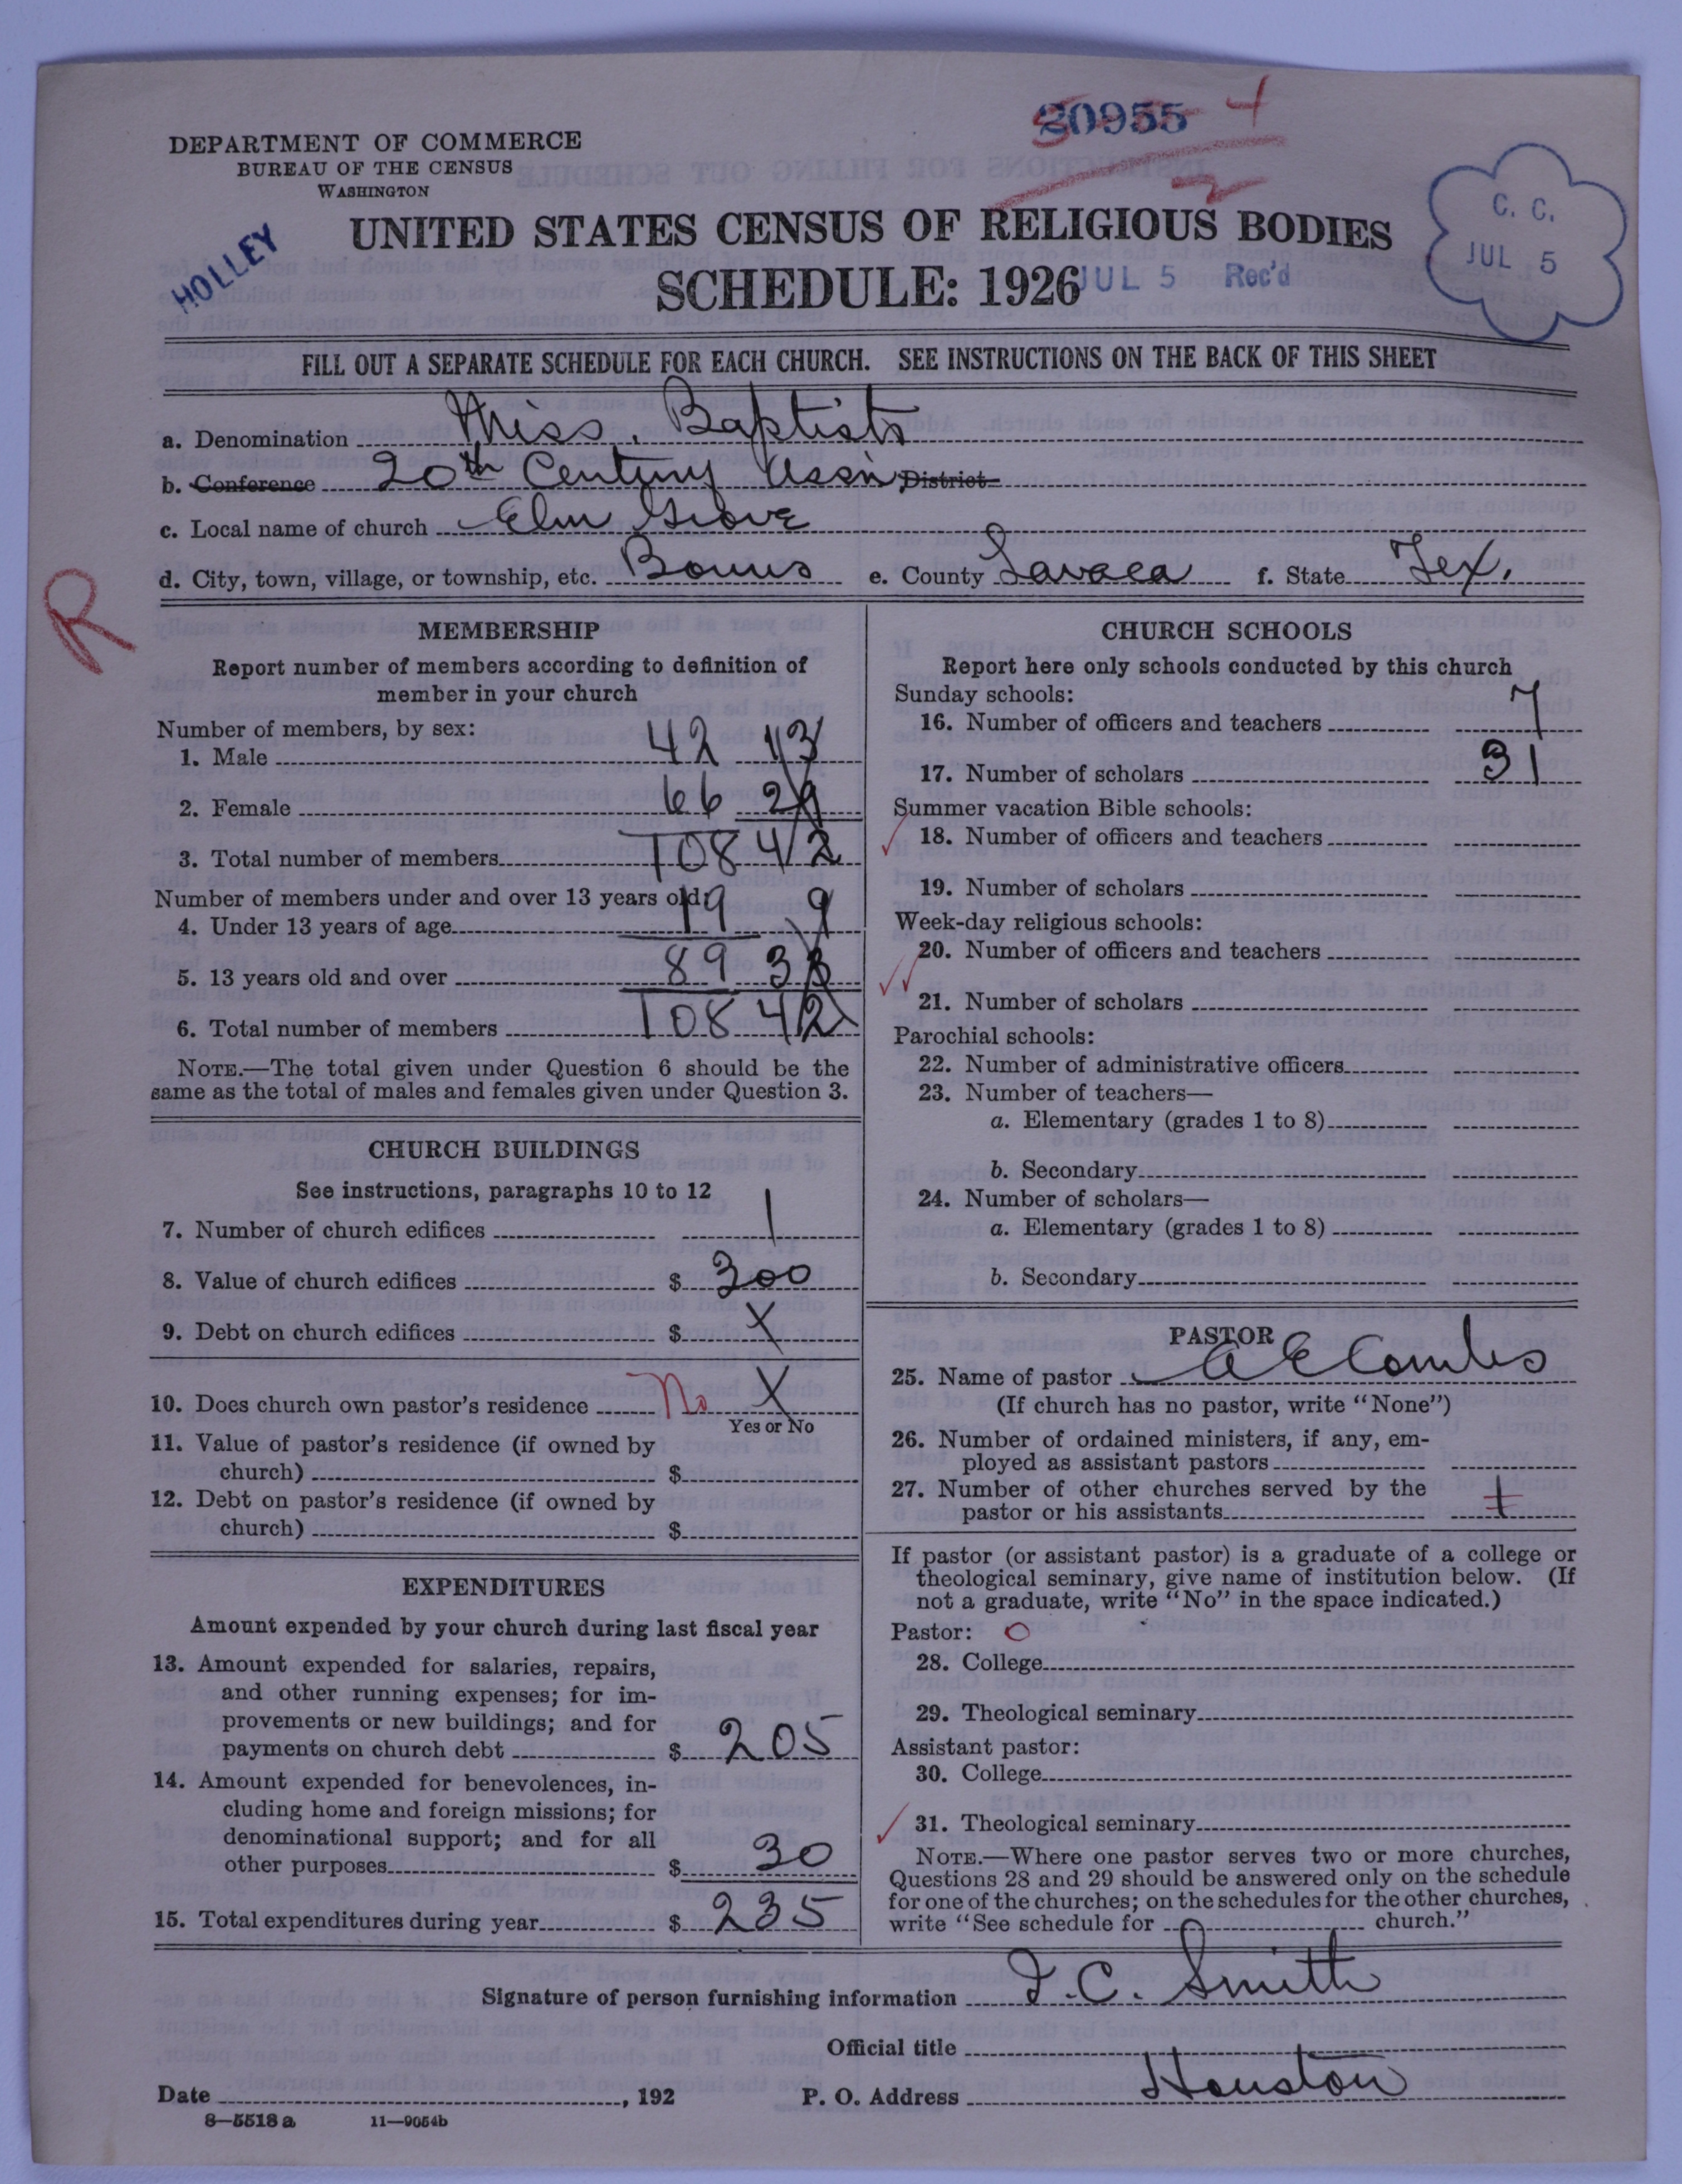 20955
DEPARTMENT OF COMMERCE
BUREAU OF THE CENSUS
WASHINGTON
HOLLEY
UNITED STATES CENSUS OF RELIGIOUS BODIES
SCHEDULE: 1926
JUL 5 Rec'd
C. C.
JUL 5
FILL OUT A SEPARATE SCHEDULE FOR EACH CHURCH. SEE INSTRUCTIONS ON THE BACK OF THIS SHEET
a. Denomination Miss. Baptists
b. Conference 20th Century Ass'n District
c. Local name of church Elm Grove
d. City, town, village, or township, etc. Bonus e. County Lavaca f. State Tex.
R
MEMBERSHIP
Report number of members according to definition of
member in your church
Number of members, by sex:
1. Male 42 13
2. Female 66 29
3. Total number of members 108 42
Number of members under and over 13 years old:
4. Under 13 years of age 19 9
5. 13 years old and over 89 33
6. Total number of members 108 42
NOTE.—The total given under Question 6 should be the
same as the total of males and females given under Question 3.
CHURCH BUILDINGS
See instructions, paragraphs 10 to 12
7. Number of church edifices 1
8. Value of church edifices $ 300
9. Debt on church edifices $ X
10. Does church own pastor's residence No X
Yes or No
11. Value of pastor's residence (if owned by
church) $
12. Debt on pastor's residence (if owned by
church) $
EXPENDITURES
Amount expended by your church during last fiscal year
13. Amount expended for salaries, repairs,
and other running expenses; for im-
provements or new buildings; and for
payments on church debt $ 205
14. Amount expended for benevolences, in-
cluding home and foreign missions; for
denominational support; and for all
other purposes $ 30
15. Total expenditures during year $ 235
CHURCH SCHOOLS
Report here only schools conducted by this church
Sunday schools:
16. Number of officers and teachers 7
17. Number of scholars 31
Summer vacation Bible schools:
18. Number of officers and teachers
19. Number of scholars
Week-day religious schools:
20. Number of officers and teachers
21. Number of scholars
Parochial schools:
22. Number of administrative officers
23. Number of teachers—
a. Elementary (grades 1 to 8)
b. Secondary
24. Number of scholars—
a. Elementary (grades 1 to 8)
b. Secondary
PASTOR
25. Name of pastor A E Combs
(If church has no pastor, write "None")
26. Number of ordained ministers, if any, em-
ployed as assistant pastors
27. Number of other churches served by the
pastor or his assistants 1
If pastor (or assistant pastor) is a graduate of a college or
theological seminary, give name of institution below. (If
not a graduate, write "No" in the space indicated.)
Pastor: O
28. College
29. Theological seminary
Assistant pastor:
30. College
31. Theological seminary
NOTE.—Where one pastor serves two or more churches,
Questions 28 and 29 should be answered only on the schedule
for one of the churches; on the schedules for the other churches,
write "See schedule for church."
Signature of person furnishing information J. C. Smith
Official title
Date , 192 P. O. Address Houston
8—5518 a 11—9054b